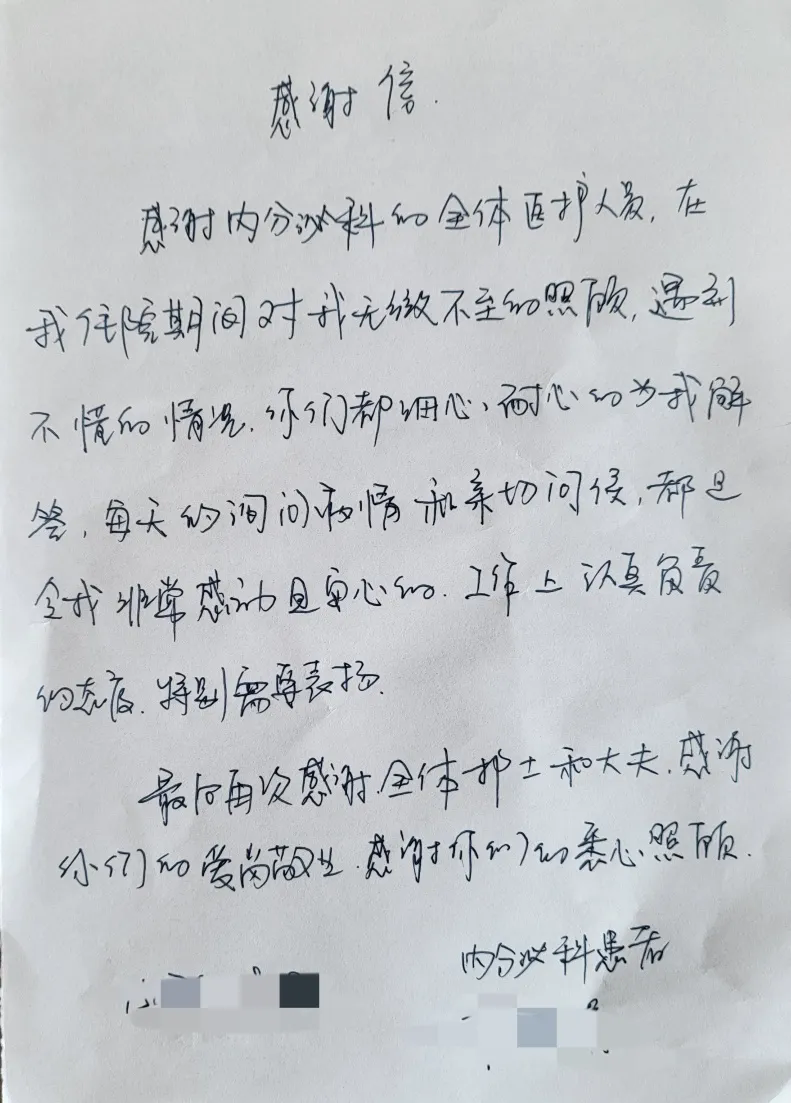 感谢信.
感谢内分泌科的全体医护人员，在
我住院期间对我无微不至的照顾，遇到
不懂的情况，你们都细心、耐心的为我解
答，每天的询问病情和亲切问侯，都是
令我非常感动且安心的．工作上认真负责
的态度．特别需要表扬．
最后再次感谢．全体护士和大夫．感谢
你们的爱岗敬业．感谢你们的悉心照顾．
内分泌科患者